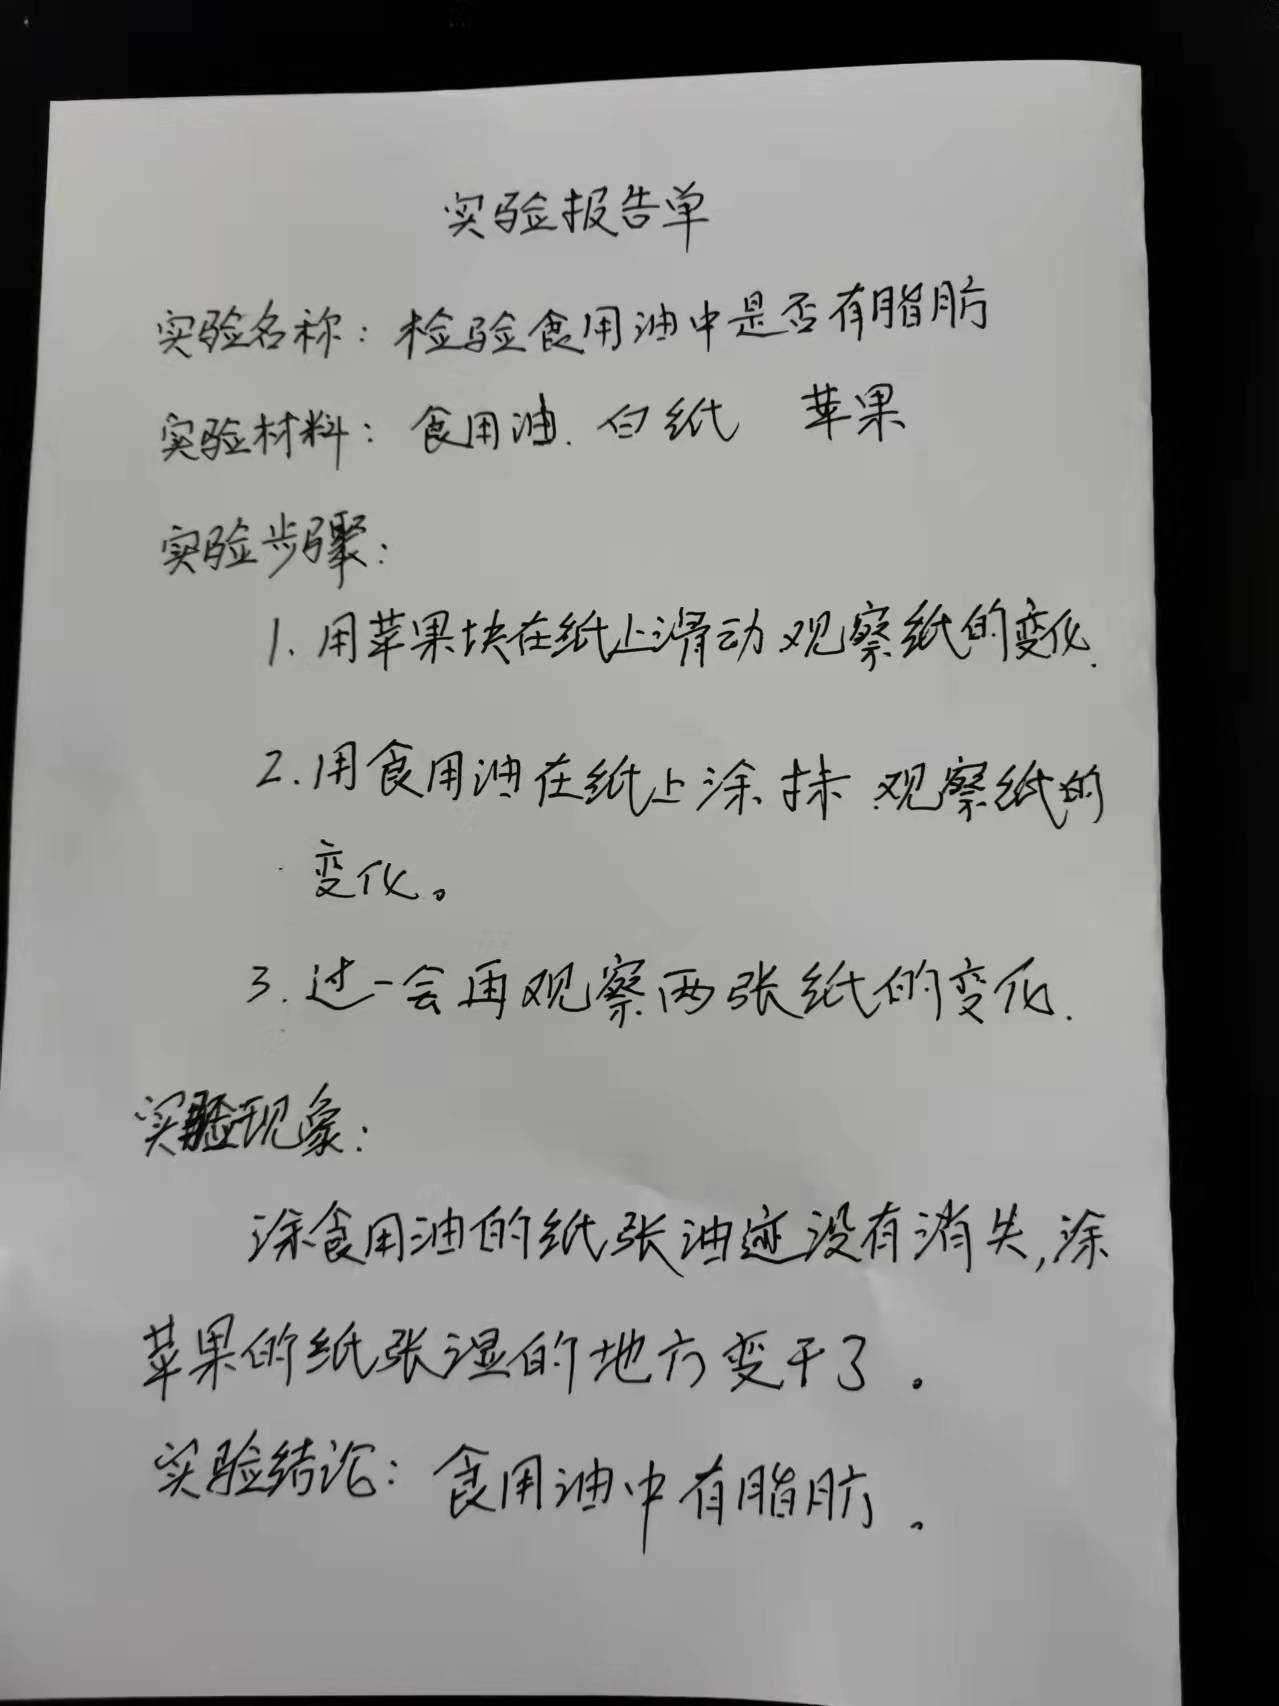 实验报告单
实验名称：检验食用油中是否有脂肪
实验材料：食用油.白纸 苹果
实验步骤：
1.用苹果块在纸上滑动观察纸的变化.
2.用食用油在纸上涂抹.观察纸的
变化。
3.过一会再观察两张纸的变化.
实验现象：
涂食用油的纸张油迹没有消失,涂
苹果的纸张湿的地方变干了。
实验结论：食用油中有脂肪。